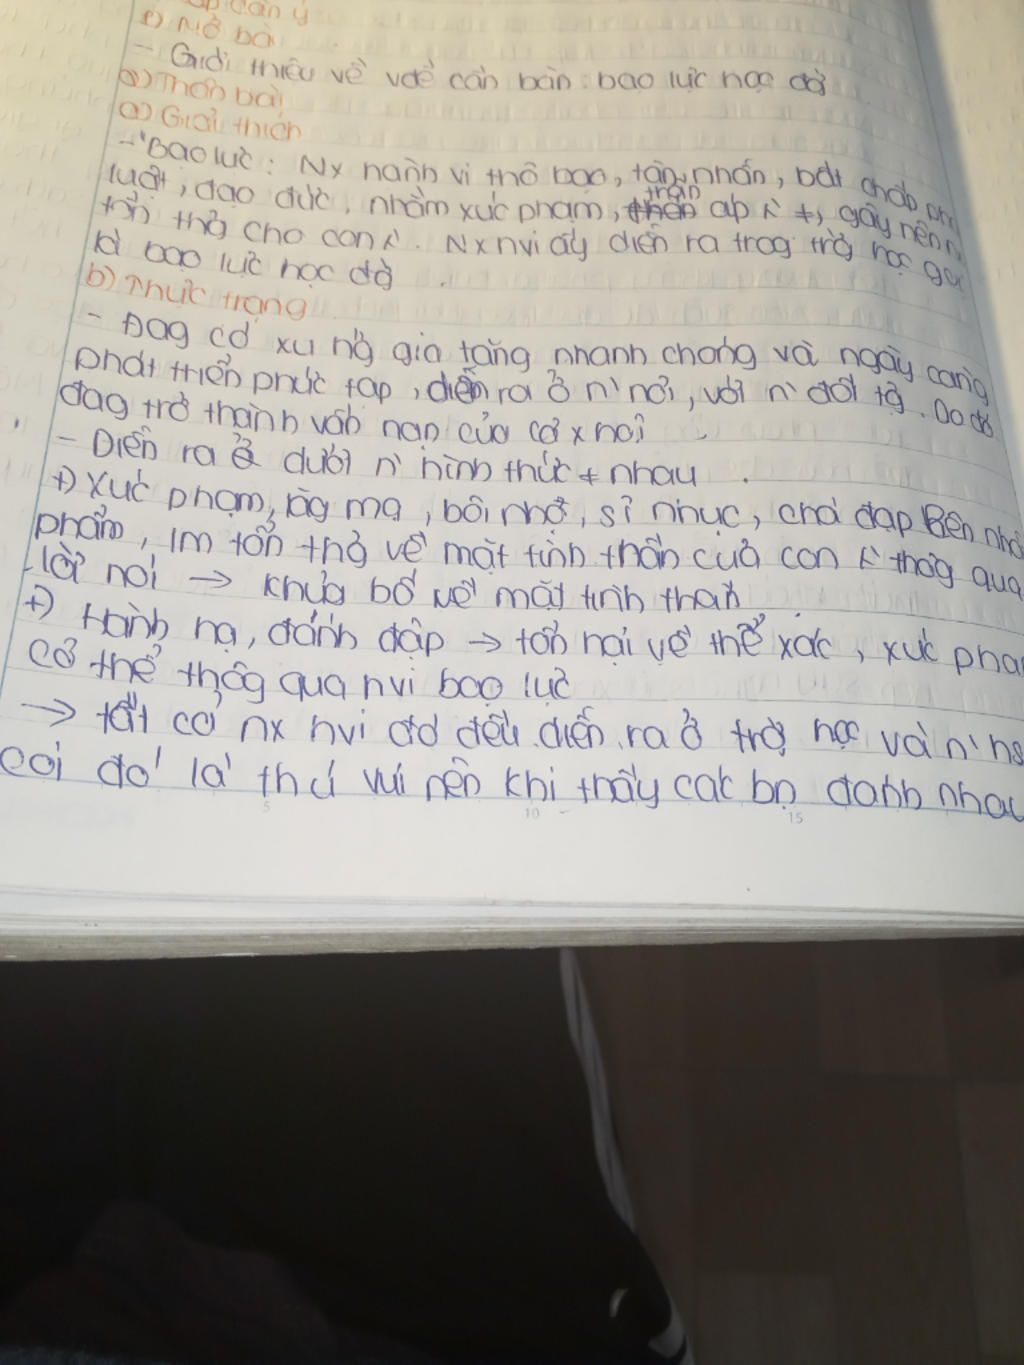 dàn ý
1) Mở bài
- Giới thiệu về vđề cần bàn: bạo lực học đờ
2) Thân bài
a) Giải thích
- "Bạo lực: Nx hành vi thô bạo, tàn nhẫn, bất chấp
luật, đạo đức, nhằm xúc phạm, trấn áp ≠, gây nên
tổn thg cho con . Nx nvi ấy diễn ra trog trg học gọi
là bạo lực học đg
b) Thực trạng
- Đag có xu hg gia tăng nhanh chóng và ngày càng
phát triển phức tạp, diễn ra ở n` nơi, với n` đối tg. Do đó
đag trở thành vấn nạn của cả x hội
- Diễn ra dưới n` hình thức ≠ nhau.
+) Xúc phạm, lăg mạ, bôi nhọ, sỉ nhục, chà đạp lên nhâ
phẩm, lm tổn thg về mặt tinh thần của con thôg qua
lời nói → khủg bố về mặt tinh thần
+) Hành hạ, đánh đập → tổn hại về thể xác, xúc phạ
cơ thể thôg qua hvi bạo lực
→ tất cả nx hvi đó đều diễn ra ở trg học và n` hs
coi đó là thú vui nên khi thấy các bn đánh nhau